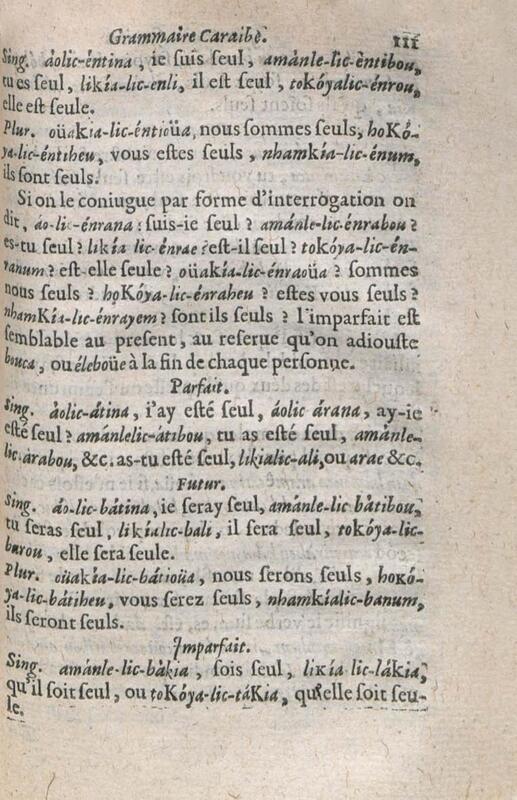 Grammaire Caraibe. 111
Sing. áolic-éntina, ie ſuis ſeul, amánle-lic-èntibou,
tu es ſeul, likía-lic-enli, il est ſeul, tokóyalic-énrou,
elle eſt ſeule.
Plur. oüakia-lic-éntioüa, nous ſommes ſeuls, hoKó-
ya-lic-éntiheu, vous eſtes ſeuls, nhamkía-lic-énum,
ils ſont ſeuls.
Si on le coniugue par forme d'interrogation on
dit, áo-lic-énrana : suis-ie ſeul ? amánle-lic-énrabou ?
es-tu ſeul ? likía lic-énrae ? eſt-il ſeul ? tokóya-lic-én-
ranum ? eſt-elle ſeule ? oüakía-lic-énraoüa ? ſommes
nous ſeuls ? hoKóya-lic-énraheu ? eſtes vous ſeuls ?
nhamKía-lic-énrayem ? ſont ils ſeuls ? l'imparfait eſt
ſemblable au preſent, au reſerue qu'on adiouſte
bouca, ou éleboüe à la fin de chaque perſonne.
Parfait.
Sing. áolic-átina, i'ay eſté ſeul, áolic árana, ay-ie
eſté ſeul ? amánlelic-átibou, tu as eſté ſeul, amánle-
lic-árabou, &c. as-tu eſté ſeul, likialic-ali, ou arae &c.
Futur.
Sing. áo-lic-bátina, ie ſeray ſeul, amánle-lic bàtibou,
tu ſeras ſeul, likíalic-bali, il ſera ſeul, tokóya-lic-
barou, elle ſera ſeule.
Plur. oüakía-lic-bátioüa, nous ſerons ſeuls, hoκó-
ya-lic-bátiheu, vous ſerez ſeuls, nhamkíalic-banum,
ils ſeront ſeuls.
Imparfait.
Sing. amánle-lic-bàkia, ſois ſeul, liκía lic-lákia,
qu'il ſoit ſeul, ou toKóya-lic-táKia, qu'elle ſoit ſeu-
le.